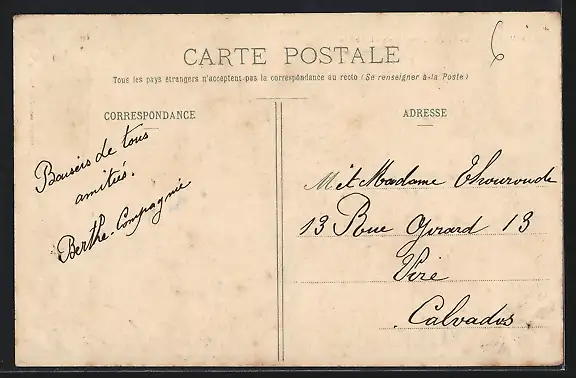 6
CARTE POSTALE
Tous les pays étrangers n'acceptent pas la correspondance au recto (Se renseigner à la Poste)
CORRESPONDANCE
Bauséis de tous
amitiés.
Berthe-Compagnie
ADRESSE
M et Madame Thouroude
13 Rue Girard 13
Vire
Calvados